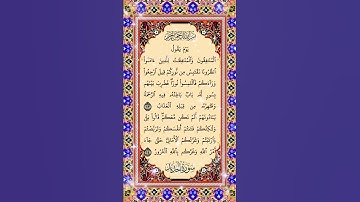 بسم الله الرحمن الرحيم
يَوْمَ يَقُولُ
ٱلْمُنَٰفِقُونَ وَٱلْمُنَٰفِقَٰتُ لِلَّذِينَ ءَامَنُوا۟
ٱنظُرُونَا نَقْتَبِسْ مِن نُّورِكُمْ قِيلَ ٱرْجِعُوا۟
وَرَآءَكُمْ فَٱلْتَمِسُوا۟ نُورًا فَضُرِبَ بَيْنَهُم
بِسُورٍ لَّهُۥ بَابٌۢ بَاطِنُهُۥ فِيهِ ٱلرَّحْمَةُ
وَظَٰهِرُهُۥ مِن قِبَلِهِ ٱلْعَذَابُ ١٣
يُنَادُونَهُمْ أَلَمْ نَكُن مَّعَكُمْ قَالُوا۟ بَلَىٰ
وَلَٰكِنَّكُمْ فَتَنتُمْ أَنفُسَكُمْ وَتَرَبَّصْتُمْ
وَٱرْتَبْتُمْ وَغَرَّتْكُمُ ٱلْأَمَانِىُّ حَتَّىٰ جَآءَ
أَمْرُ ٱللَّهِ وَغَرَّكُم بِٱللَّهِ ٱلْغَرُورُ ١٤
سورة الحديد